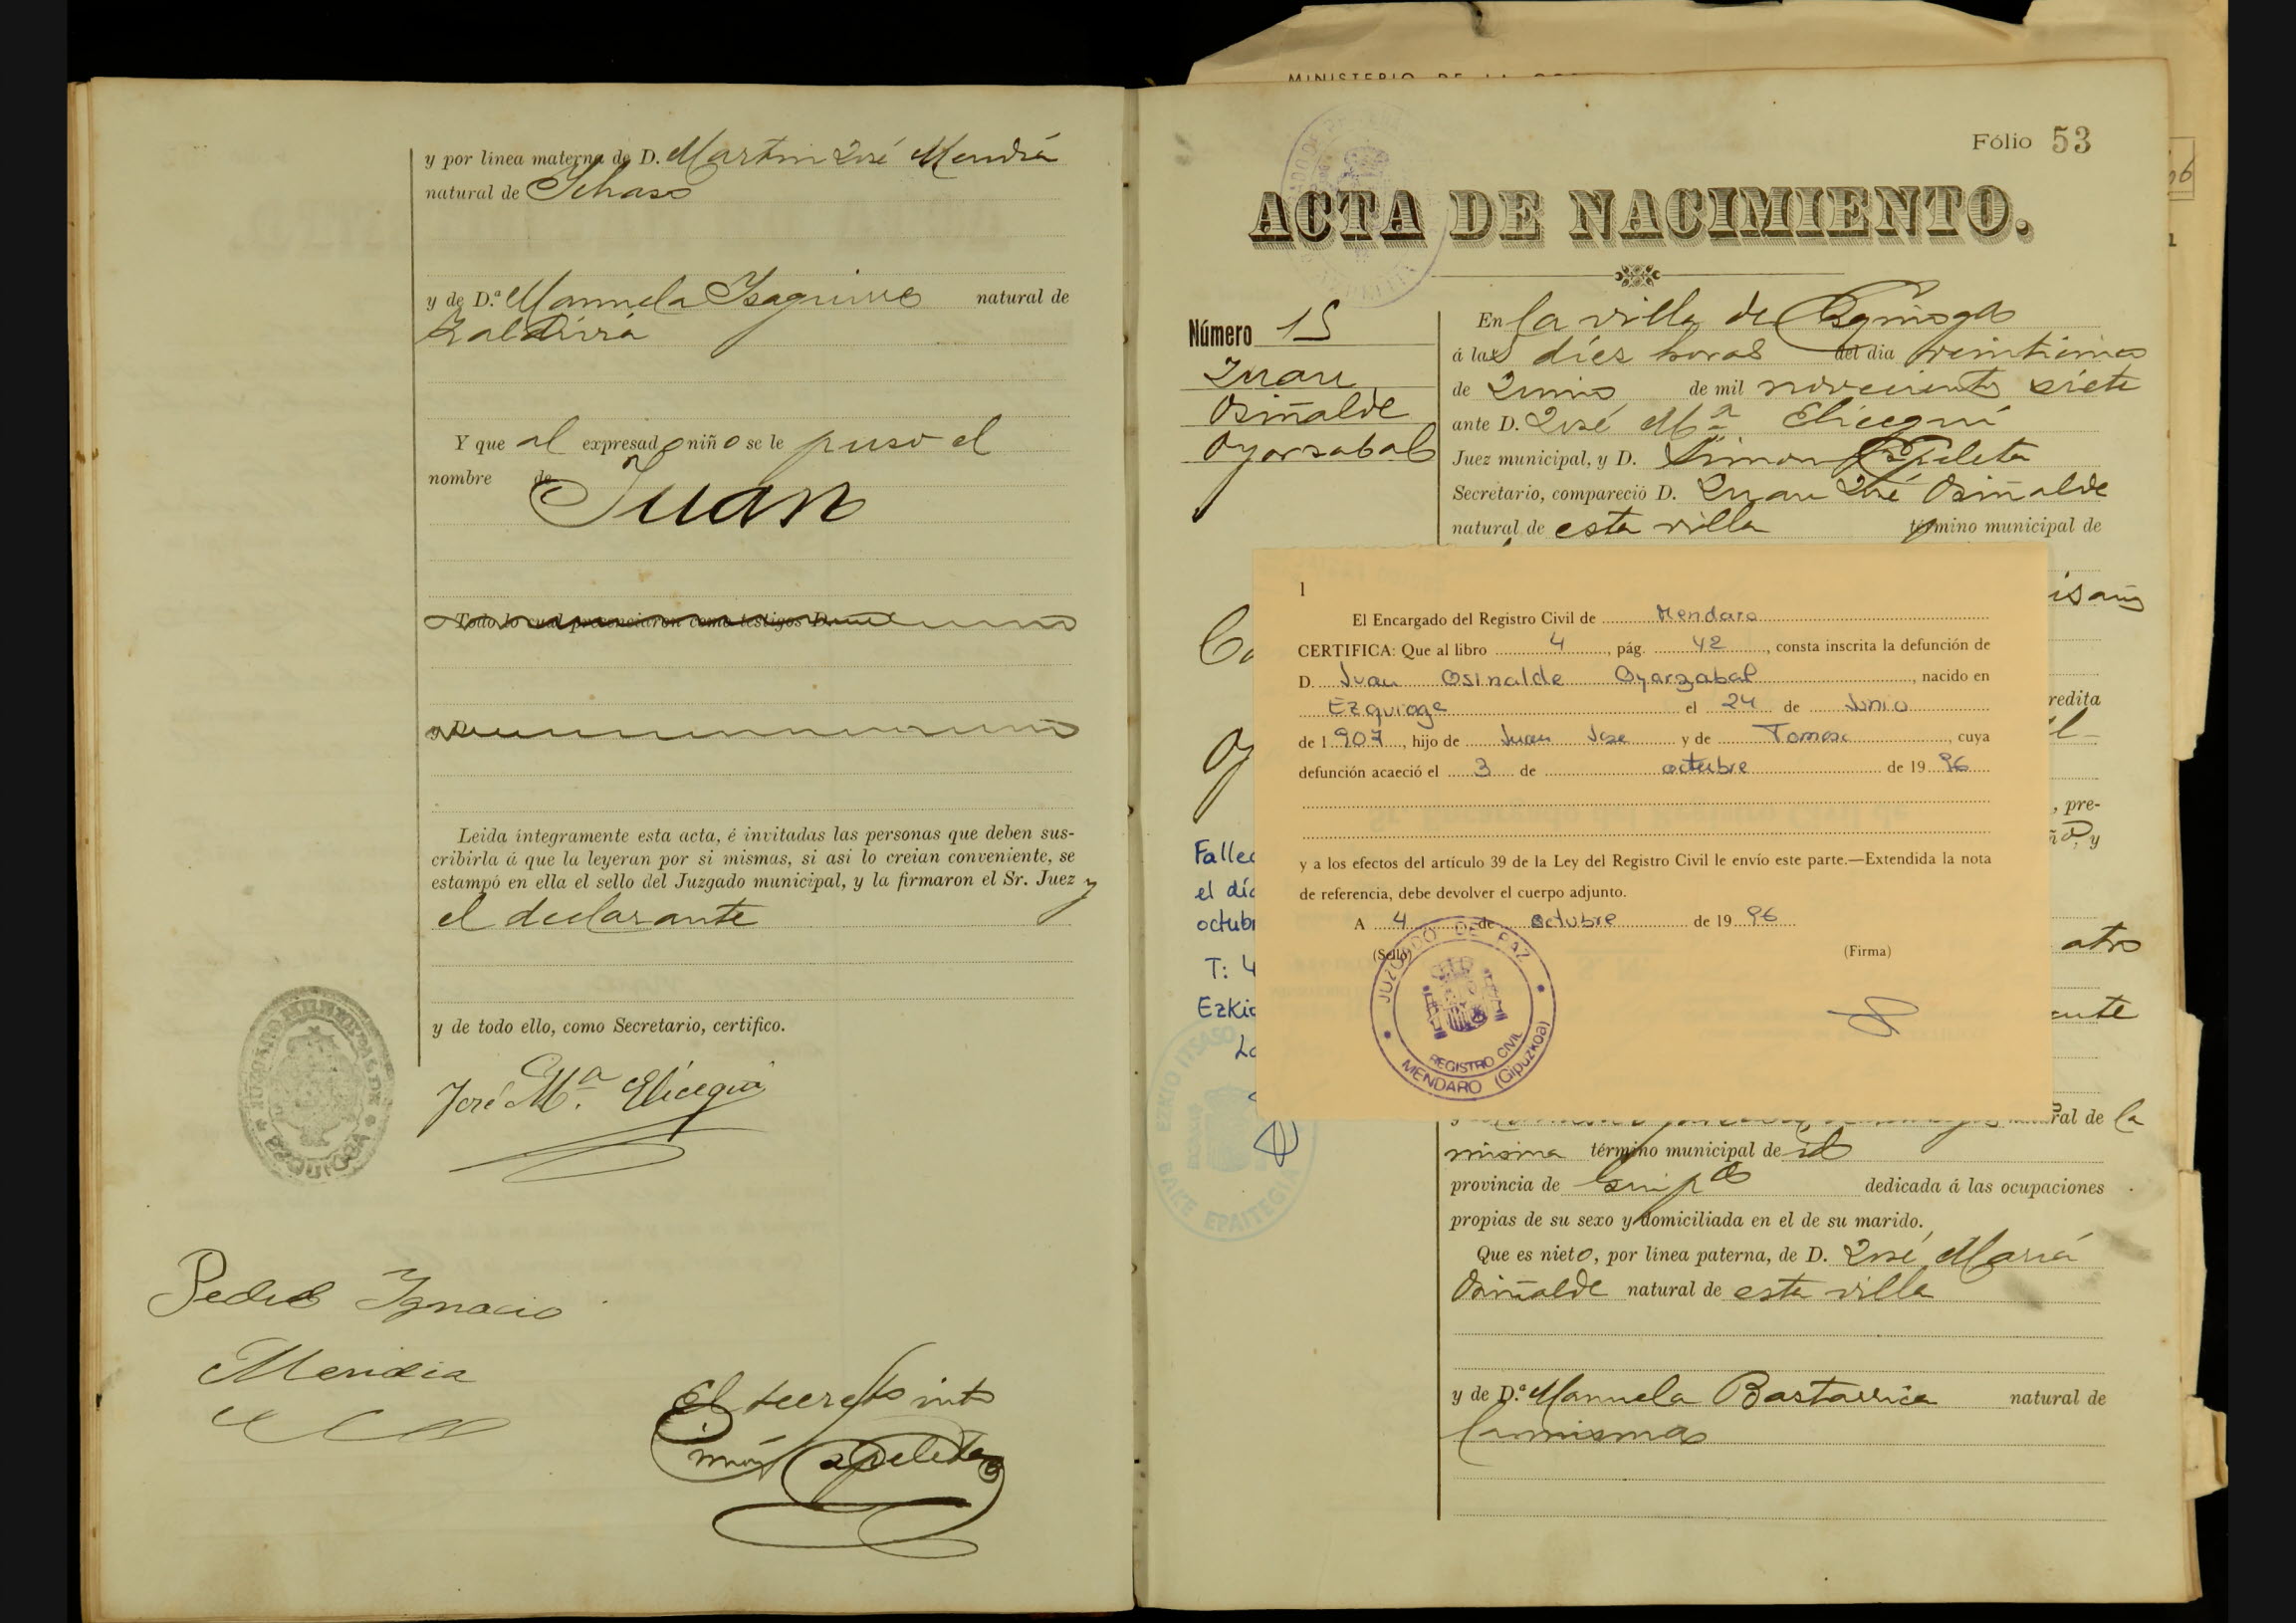 y por línea materna de D. Martin José Mendia
natural de Ichaso
y de D.ª Manuela Ysaguirre natural de
Zaldivia
Y que al expresado niño se le puso el
nombre de Juan
Todo lo cual presenciaron como testigos D.
Leida íntegramente esta acta, é invitadas las personas que deben sus-
cribirla á que la leyeran por si mismas, si asi lo creian conveniente, se
estampó en ella el sello del Juzgado municipal, y la firmaron el Sr. Juez y
el declarante
y de todo ello, como Secretario, certifico.
JUZGADO MUNICIPAL DE
EZQUIOGA
José M.ª Elicegui
Pedro Ignacio
Mendia
El secretº intº
Simón Apeleta
MINISTERIO DE LA
Fólio 53
ACTA DE NACIMIENTO.
Número 15
Juan
Osiñalde
Oyarzabal
En la villa de Ezquioga
á las diez horas del dia
de Junio de mil novecientos siete
ante D. José Mª Elicegui
Juez municipal, y D. Simon
Secretario, compareció D. Juan José Osiñalde
natural de esta villa término municipal de
1
El Encargado del Registro Civil de Mendaro
CERTIFICA: Que al libro 4, pág. 42, consta inscrita la defunción de
D. Juan Osinalde Oyarzabal, nacido en
Ezquioga el 24 de Junio
de 1907, hijo de Juan Jose y de Tomasa, cuya
defunción acaeció el 3 de octubre de 1996
y a los efectos del artículo 39 de la Ley del Registro Civil le envío este parte.—Extendida la nota
de referencia, debe devolver el cuerpo adjunto.
A 4 de octubre de 1996
(Sello) (Firma)
JUZGADO DE PAZ
REGISTRO CIVIL
MENDARO (Gipuzkoa)
redita
, pre-
y
Fallec
el día
octubr
T: 4
Ezkio
EZKIO ITSASO
BAKE EPAITEGIA
ral de la
misma término municipal de id
provincia de Guipª dedicada á las ocupaciones
propias de su sexo y domiciliada en el de su marido.
Que es nieto, por línea paterna, de D. José Maria
Osiñalde natural de esta villa
y de D.ª Manuela Bastarrica natural de
la misma